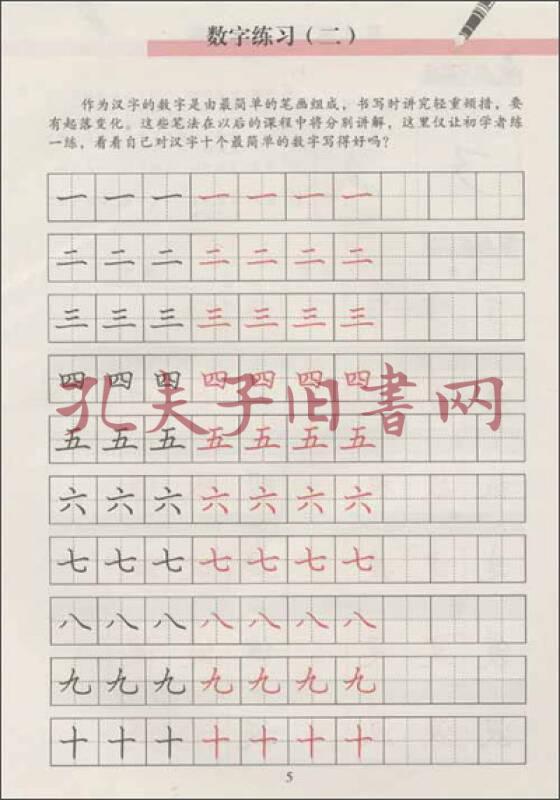 数字练习（二）
作为汉字的数字是由最简单的笔画组成，书写时讲究轻重顿措，要
有起落变化。这些笔法在以后的课程中将分别讲解，这里仅让初学者练
一练，看看自己对汉字十个最简单的数字写得好吗？
一一一一一一一
二二二二二二二
三三三三三三三
四四四四四四四
孔夫子旧书网
五五五五五五五
六六六六六六六
七七七七七七七
八八八八八八八
九九九九九九九
十十十十十十十
5